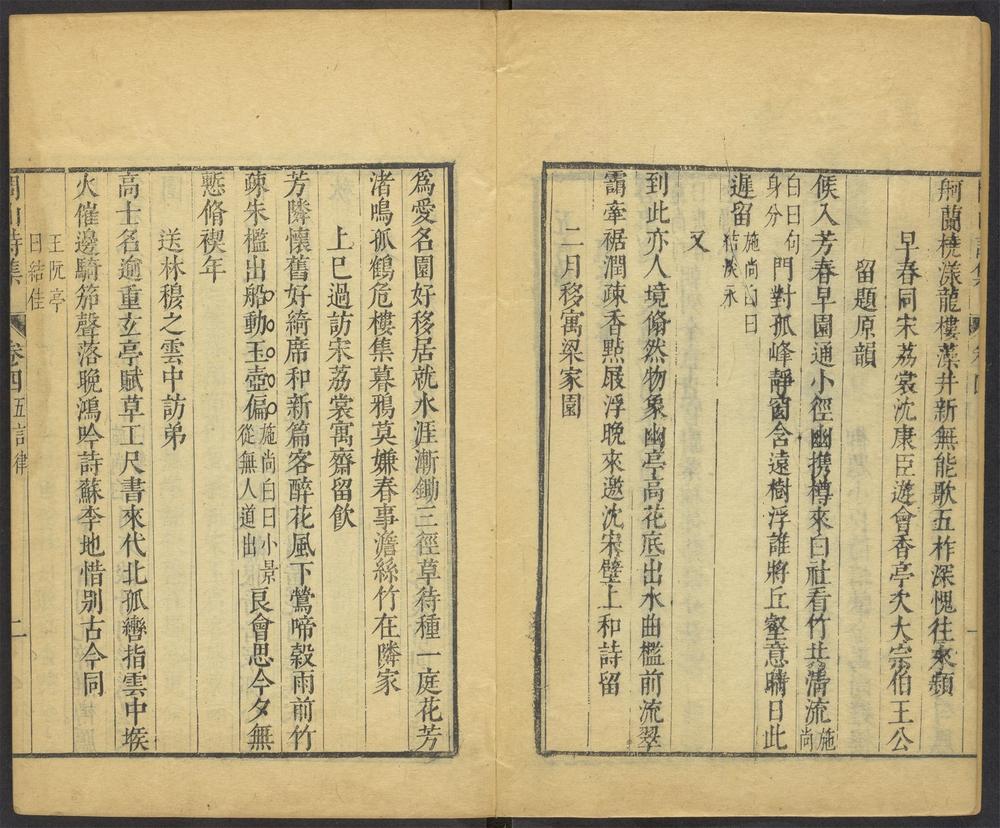 舸蘭橈漾龍樓藻井新無能歌五柞深愧往來頻
早春同宋荔裳沈康臣遊會香亭次大宗伯王公
留題原韻
候入芳春早園通小徑幽携樽來白社看竹北清流施尚
白曰句身分門對孤峰靜窗含遠樹浮誰將丘壑意晴日此
遲留施尚白曰結淡永
又
到此亦人境翛然物象幽亭高花底出水曲檻前流翠
靄牽裾潤疎香點屐浮晚來邀沈宋壁上和詩留
二月移寓梁家園
爲愛名園好移居就水涯漸鋤三徑草待種一庭花芳
渚鳴孤鶴危樓集暮鴉莫嫌春事澹絲竹在隣家
上巳過訪宋荔裳寓齋留飲
芳隣懷舊好綺席和新篇客醉花風下鶯啼穀雨前竹
疎朱檻出船動玉壺偏施尚白曰小景從無人道出良會思今夕無
慙脩禊年
送林穆之雲中訪弟
高士名逾重玄亭賦草工尺書來代北孤轡指雲中堠
火催邊騎笳聲落晚鴻吟詩蘇李地惜別古今同
王阮亭曰結佳
詩集
卷四五言律
二